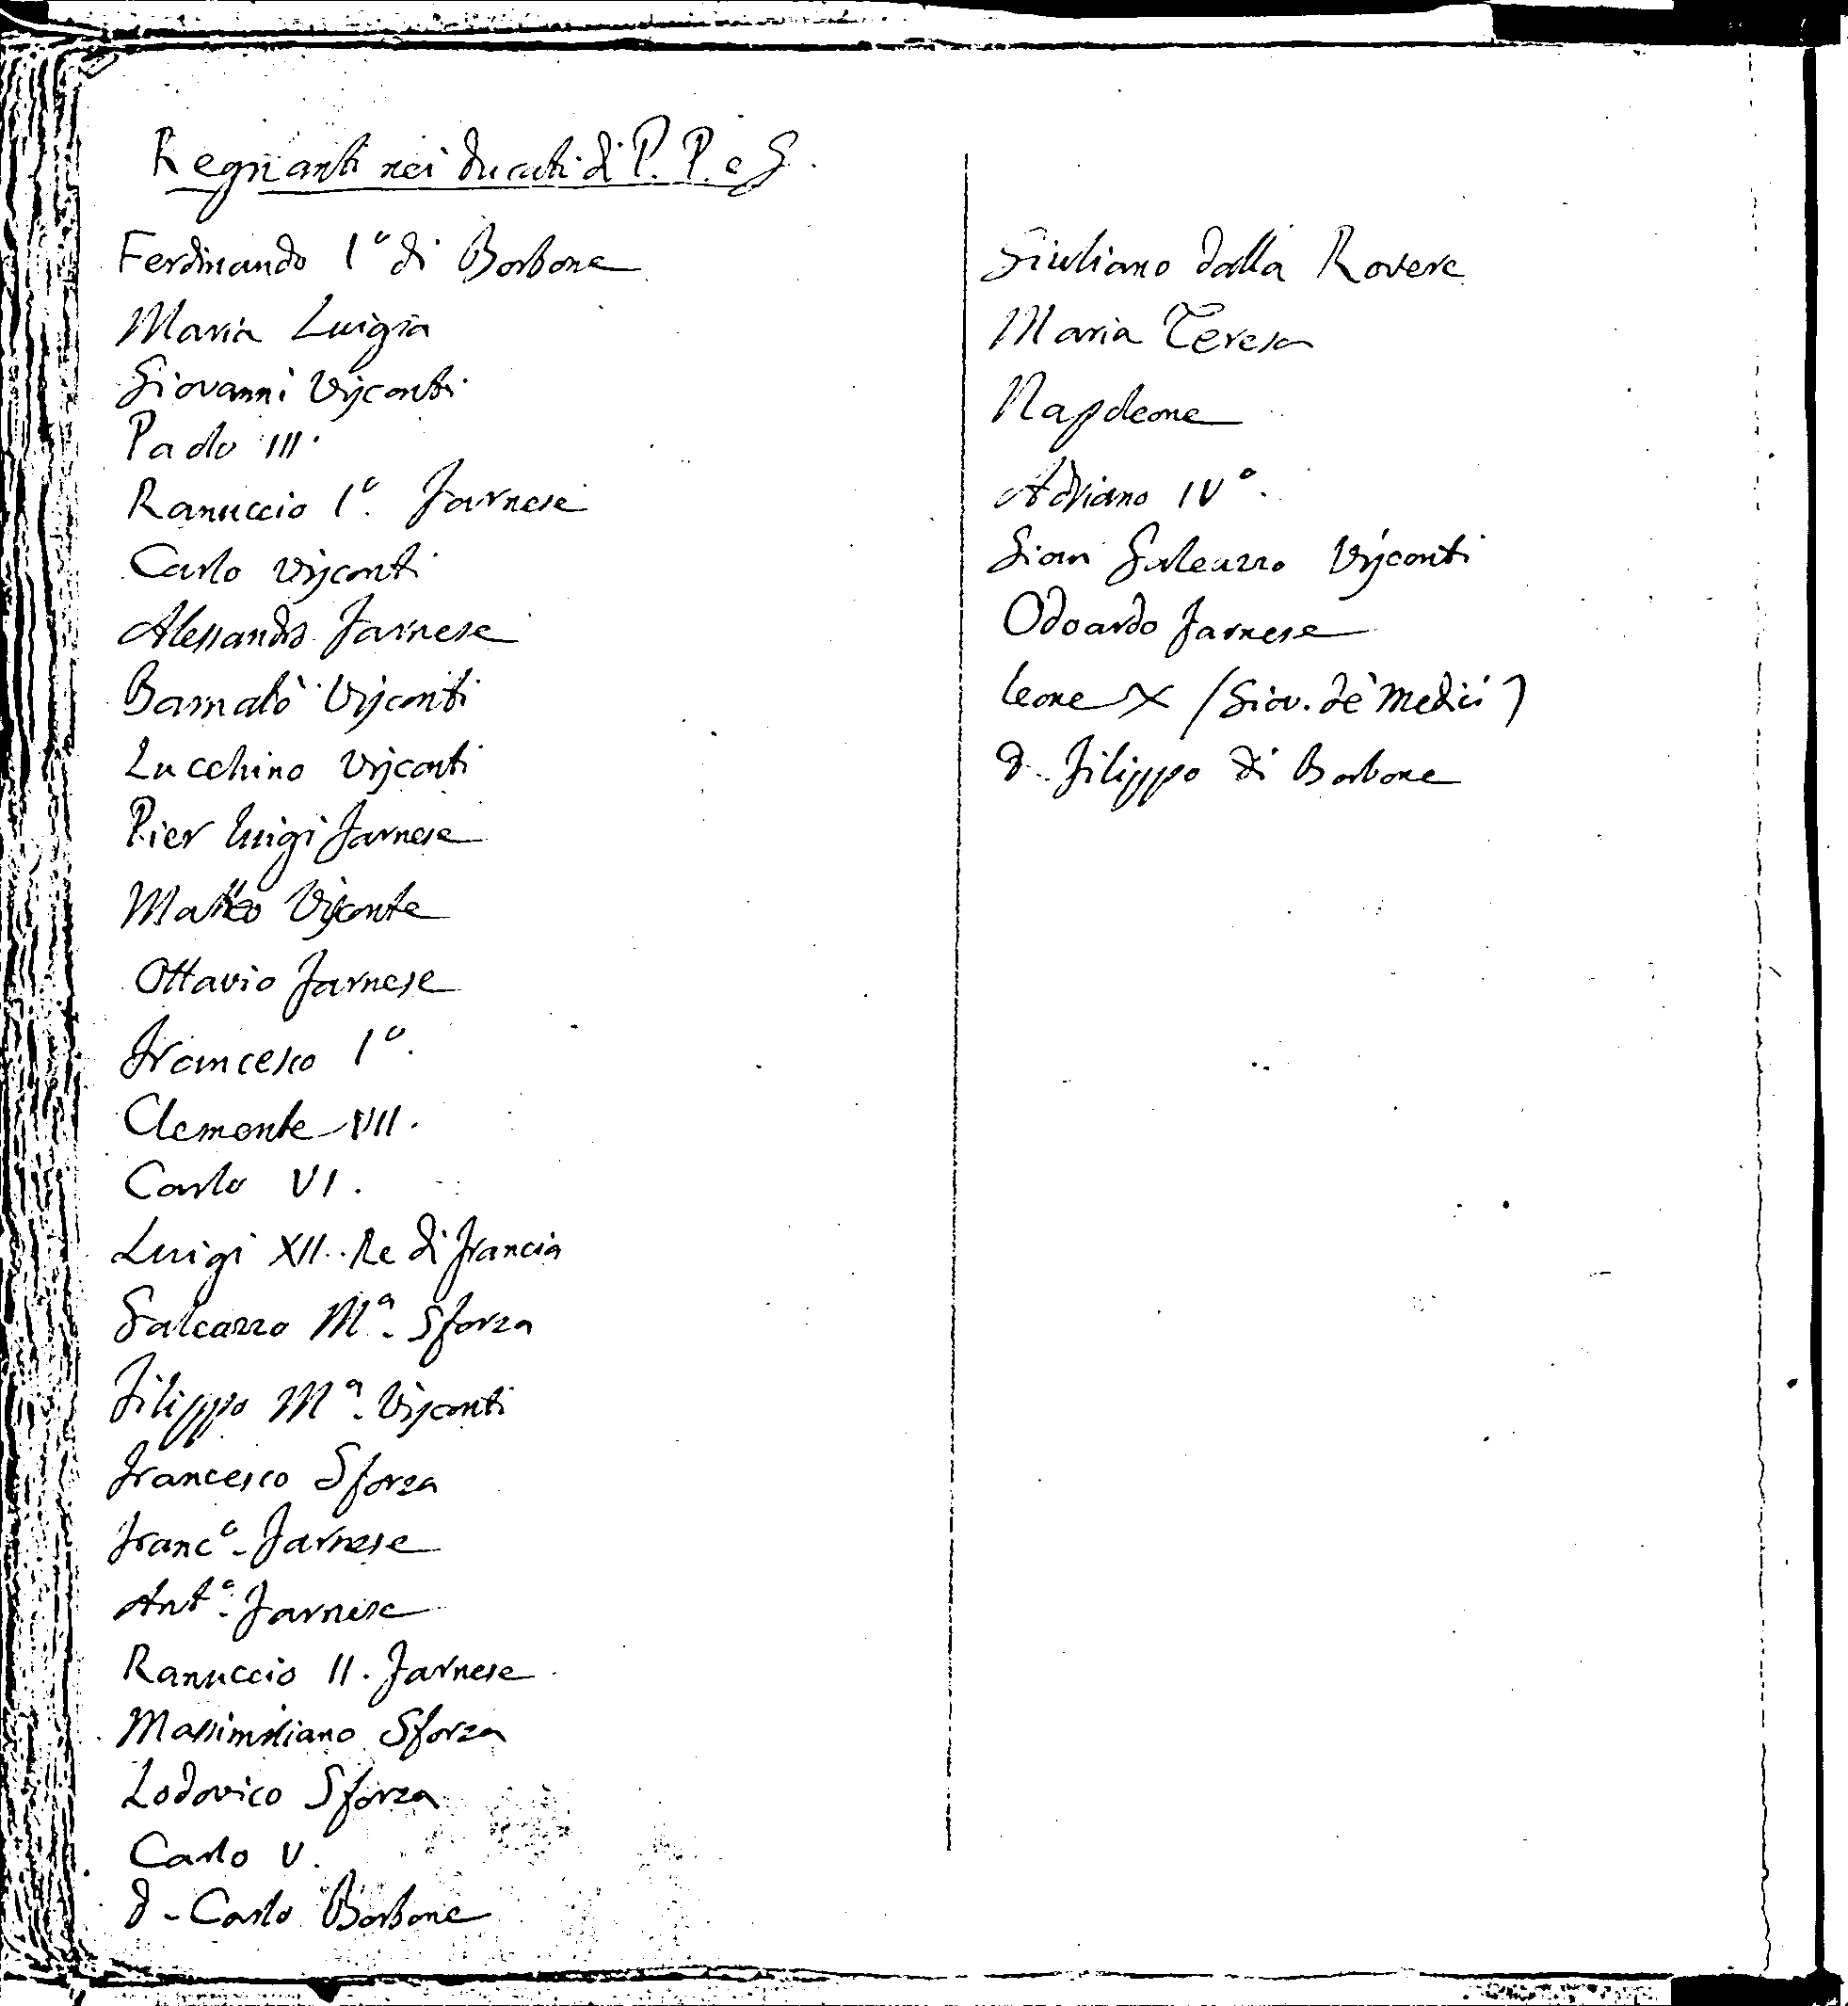 Regnanti nei ducati di P. P. e G.
Ferdinando I° di Borbone
Maria Luigia
Giovanni Visconti
Paolo III.
Ranuccio I°. Farnese
Carlo Visconti
Alessandro Farnese
Barnabò Visconti
Lucchino Visconti
Pier Luigi Farnese
Matteo Visconte
Ottavio Farnese
Francesco I°.
Clemente VII.
Carlo VI.
Luigi XII. Re di Francia
Galeazzo Mª. Sforza
Filippo Mª. Visconti
Francesco Sforza
Franc°. Farnese
Ant°. Farnese
Ranuccio II. Farnese
Massimiliano Sforza
Lodovico Sforza
Carlo V.
d. Carlo Borbone
Giuliano dalla Rovere
Maria Teresa
Napoleone
Adriano IV°.
Gian Galeazzo Visconti
Odoardo Farnese
Leone X (Giov. de' Medici)
d. Filippo di Borbone